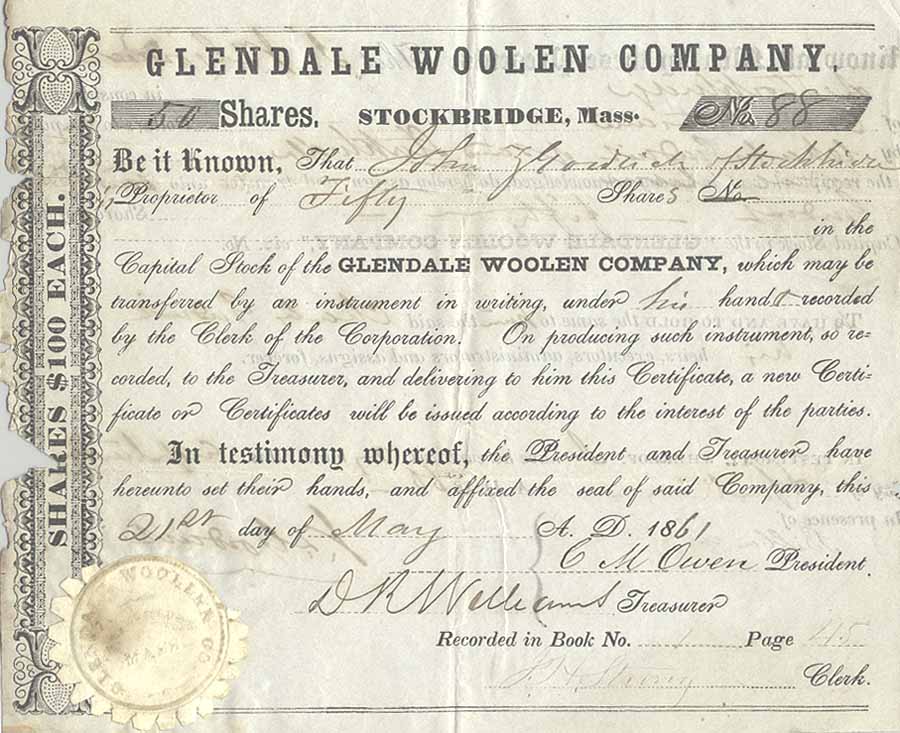 GLENDALE WOOLEN COMPANY,
50 Shares. STOCKBRIDGE, Mass. No. 88
Be it Known, That John Z Goodrich of Stockbridge
Proprietor of Fifty Shares No
in the
Capital Stock of the GLENDALE WOOLEN COMPANY, which may be
transferred by an instrument in writing, under his hand & recorded
by the Clerk of the Corporation. On producing such instrument, so re-
corded, to the Treasurer, and delivering to him this Certificate, a new Certi-
ficate or Certificates will be issued according to the interest of the parties.
In testimony whereof, the President and Treasurer have
hereunto set their hands, and affixed the seal of said Company, this
21st day of May A. D. 1861
C M Owen President.
D R Williams Treasurer
Recorded in Book No. 1 Page 45
Clerk.
SHARES $100 EACH.
WOOLEN CO